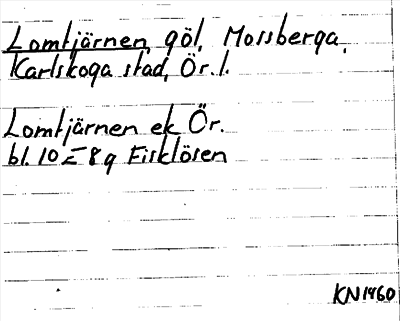 Lomtjärnen, göl, Mossberga,
Karlskoga stad, Ör. l.
Lomtjärnen ek Ör.
bl. 10 = 8 g Fisklösen
KN 1960